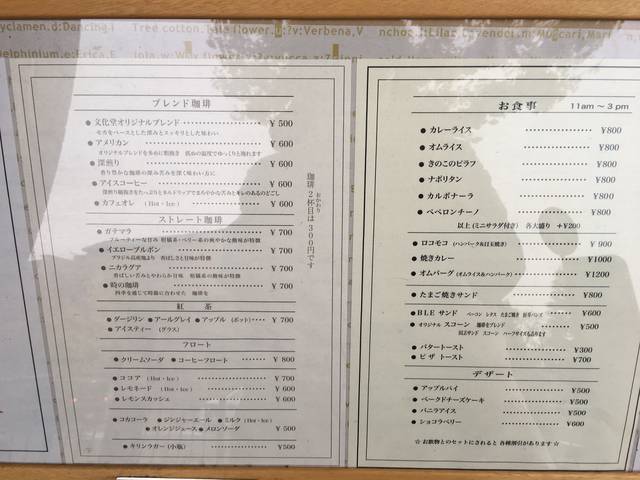 yclamen.d:Dancing.l Tree cotton.
elphinium.e:Erica.E
ブレンド珈琲
● 文化堂オリジナルブレンド ¥ 500
モカをベースとした深みとスッキリとした味わい
● アメリカン ¥ 600
● 深煎り ¥ 600
香り豊かな珈琲の深み苦みを深く味わい方に
● アイスコーヒー ¥ 600
● カフェオレ (Hot・Ice) ¥ 600
おかわり
珈琲2杯目は300円です
ストレート珈琲
● ガテマラ ¥ 700
フルーティーな甘み 柑橘系・ベリー系の爽やかな酸味が特徴
● イエローブルボン ¥ 700
ブラジル高産地より 香ばしさと甘味が特徴
● ニカラグア ¥ 700
香ばしい苦みとやわらか甘味 柑橘系の酸味が特徴
● 時の珈琲 ¥ 700
四季を通じて時節に合わせた 珈琲を
紅 茶
● ダージリン ● アールグレイ ● アップル (ポット) ¥ 700
● アイスティー (グラス)
フロート
● クリームソーダ ● コーヒーフロート ¥ 800
● ココア (Hot・Ice) ¥700
● レモネード (Hot・Ice) ¥ 600
● レモンスカッシュ ¥ 600
● コカコーラ ● ジンジャーエール ● ミルク (Hot・Ice)
● オレンジジュース ● メロンソーダ ¥ 500
● キリンラガー (小瓶) ¥500
お食事 11am～3pm
● カレーライス ¥800
● オムライス ¥800
● きのこのピラフ ¥800
● ナポリタン ¥800
● カルボナーラ ¥800
● ペペロンチーノ ¥800
以上 (ミニサラダ付き) 各大盛り +¥200
● ロコモコ (ハンバーグ&目玉焼き) ¥ 900
● 焼きカレー ¥1000
● オムバーグ (オムライス&ハンバーグ) ¥1200
● たまご焼きサンド ¥800
● BLE サンド ベーコン レタス たまご焼き ¥600
● オリジナル スコーン 珈琲をブレンド ¥500
● バタートースト ¥300
● ピザ トースト ¥700
デザート
● アップルパイ ¥500
● ベークドチーズケーキ ¥500
● バニラアイス ¥500
● ショコラベリー ¥600
☆ お飲物とのセットにされると 各種割引があります ☆